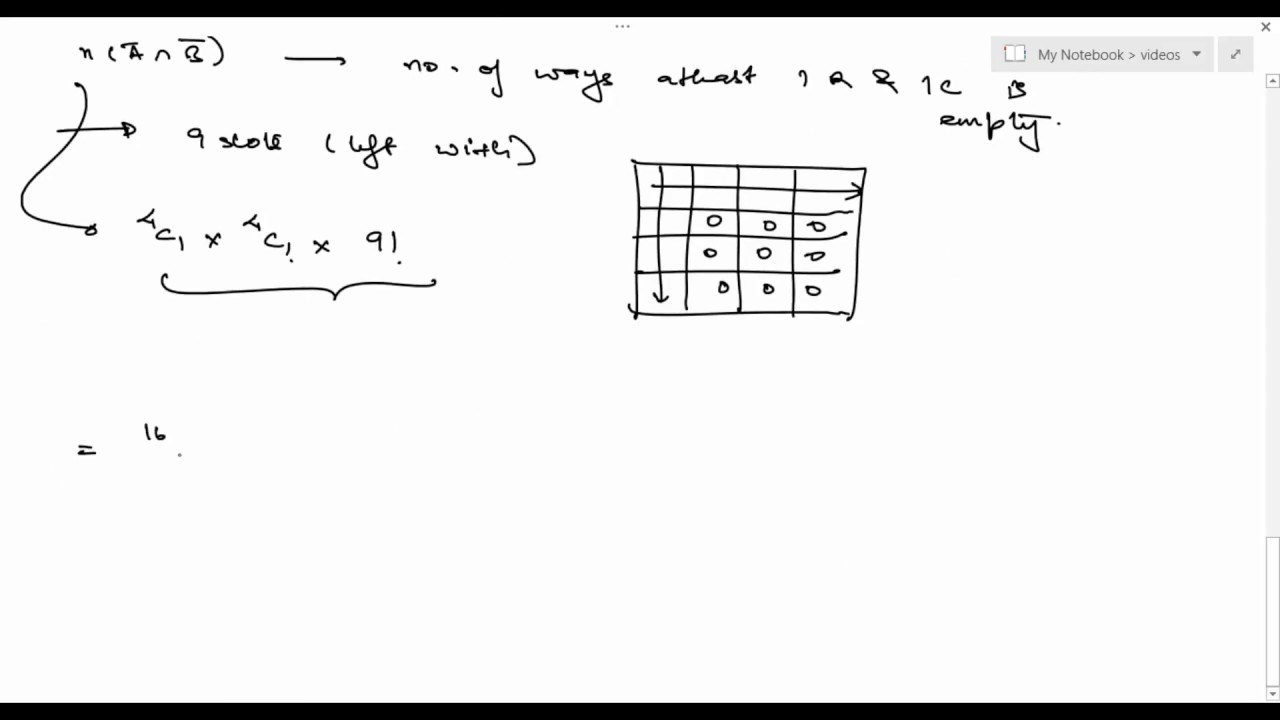 My Notebook > videos
n(A̅ ∩ B̅) → no. of ways atleast 1 R & 1C is
empty.
9 slots (left with)
⁴C₁ × ⁴C₁ × 9!
0 0 0
0 0 0
0 0 0
= 16